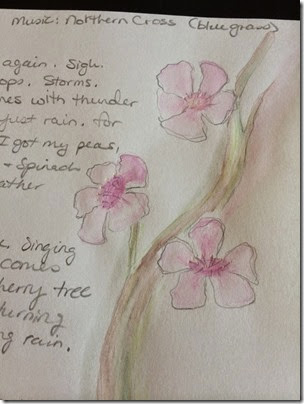 Music: Northern Cross (bluegrass)
again. Sigh.
ops. Storms.
nes with thunder
just rain. for
I got my peas,
+ Spinach
ather
e. Singing
comes
herry tree
turning
ng rain.